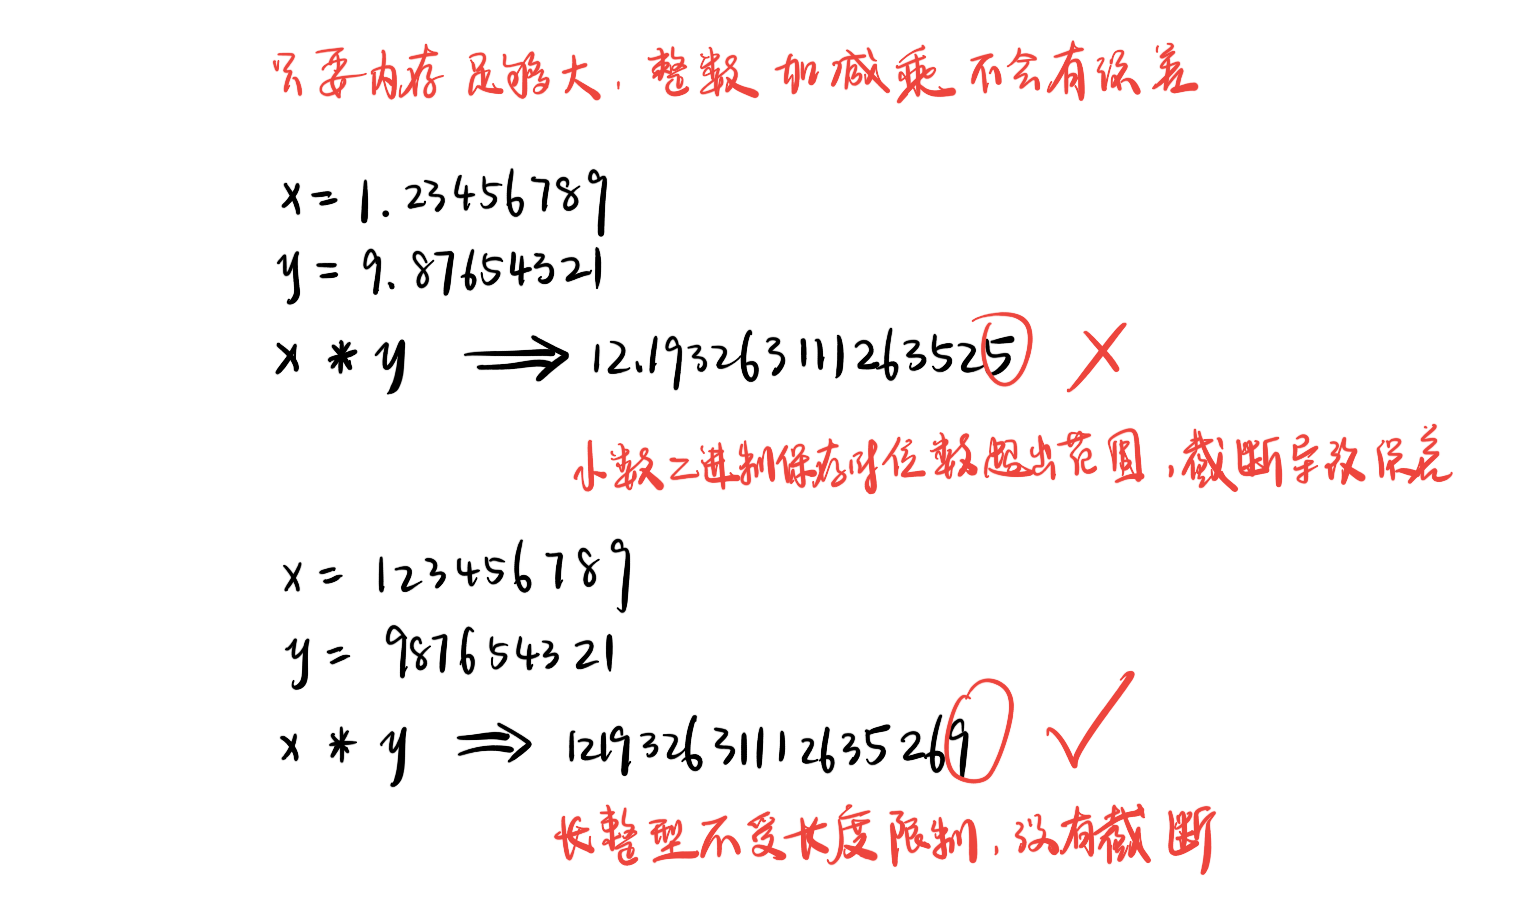 只要内存足够大，整数加减乘不会有误差
x = 1.23456789
y = 9.87654321
x * y ⟹ 12.193263111263525 ✗
小数二进制保存时位数超出范围，截断导致误差
x = 123456789
y = 987654321
x * y ⟹ 121932631112635269 ✓
长整型不受长度限制，没有截断